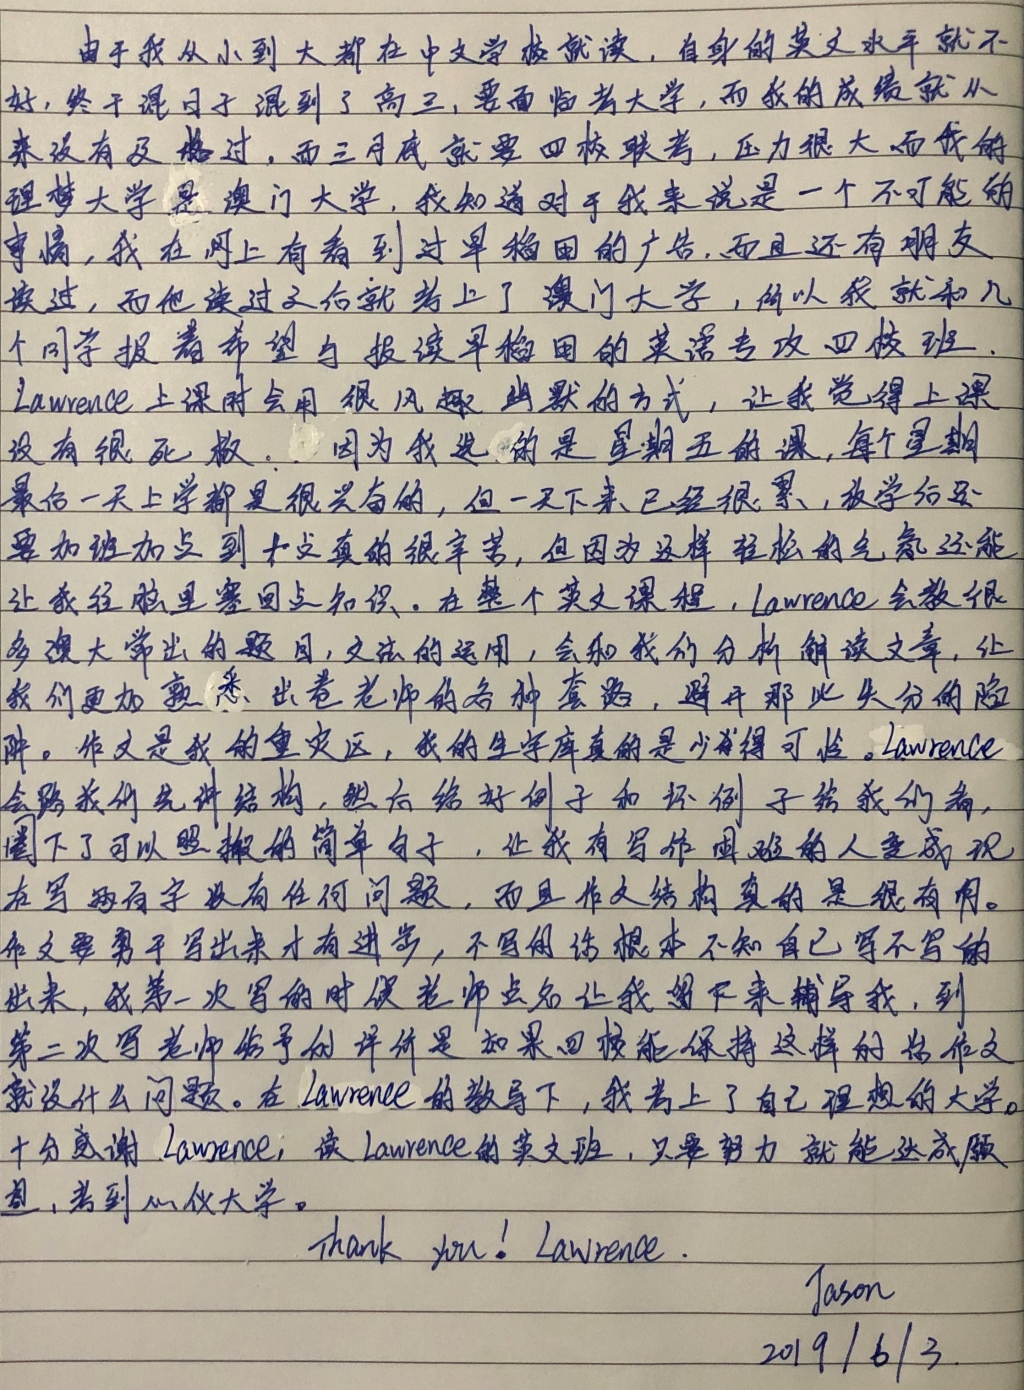 由于我从小到大都在中文学校就读，自身的英文水平就不
好，终于混日子混到了高三，要面临考大学，而我的成绩就从
来没有及格过。而三月底就要四校联考，压力很大而我的
理梦大学是澳门大学，我知道对于我来说是一个不可能的
事情，我在网上有看到过早稻田的广告，而且还有朋友
读过，而他读过之后就考上了澳门大学，所以我就和几
个同学报着希望与报读早稻田的英语专攻四校班．
Lawrence上课时会用很风趣幽默的方式，让我觉得上课
没有很死板．因为我选的是星期五的课，每个星期
最后一天上学都是很兴奋的，但一天下来已经很累，放学后还
要加班加点到十点真的很辛苦，但因为这样轻松的气氛还能
让我往脑里塞回点知识。在整个英文课程，Lawrence会教很
多澳大常出的题目，文法的运用，会和我们分析解读文章，让
我们更加熟悉出卷老师的各种套路，避开那些失分的陷
阱。作文是我的重灾区，我的生字库真的是少得可怜。Lawrence
会跟我们先讲结构，然后给好例子和坏例子给我们看，
圈下了可以照搬的简单句子，让我有写作困难的人变成现
在写两百字没有任何问题，而且作文结构真的是很有用。
作文要勇于写出来才有进步，不写的话根本不知自己写不写的
出来，我第一次写的时候老师点名让我留下来辅导我，到
第二次写老师给予的评价是如果四校能保持这样的话作文
就没什么问题。在Lawrence的教导下，我考上了自己理想的大学。
十分感谢Lawrence，读Lawrence的英文班，只要努力就能达成愿
望，考到心仪大学。
Thank you! Lawrence.
Jason
2019/6/3